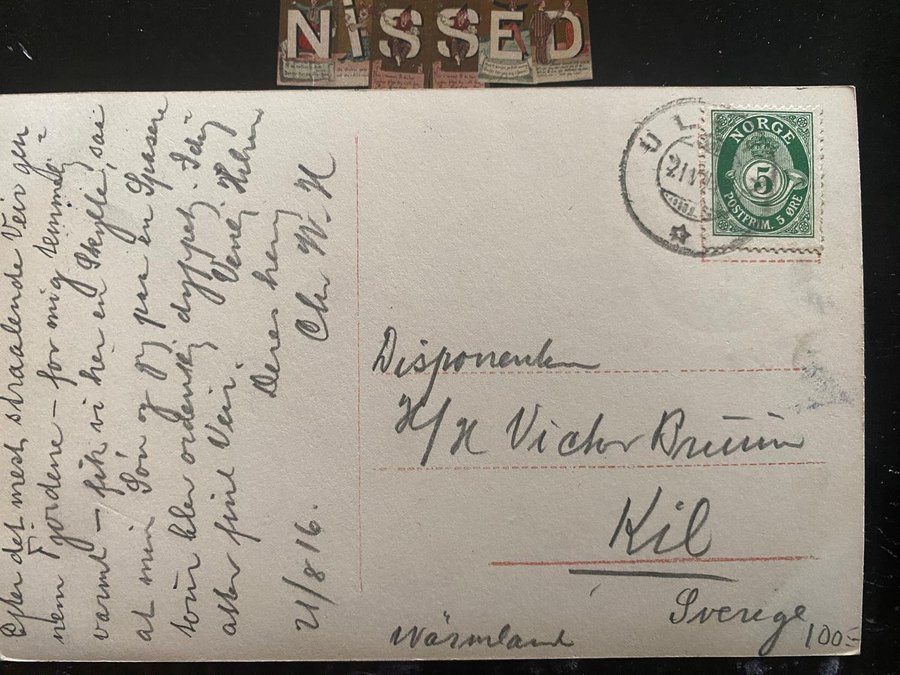 NiSSED
Efter det mest straalende Veir gen
nem Fjordene - for mig temmelig
varmt - fik vi her en Skylle, saa
at min Søn og jeg paa en Spasere
tour blev ordentlig dyppet. Idag
atter fint Veir. Venlig Hilsen
Deres heng
Chr W. H
21/8 16.
UL
21 VIII
NORGE
5
POSTFRIM. 5 ØRE
Disponenten
H/H Victor Bruun
Kil
Sverige
Wärmland
100:-